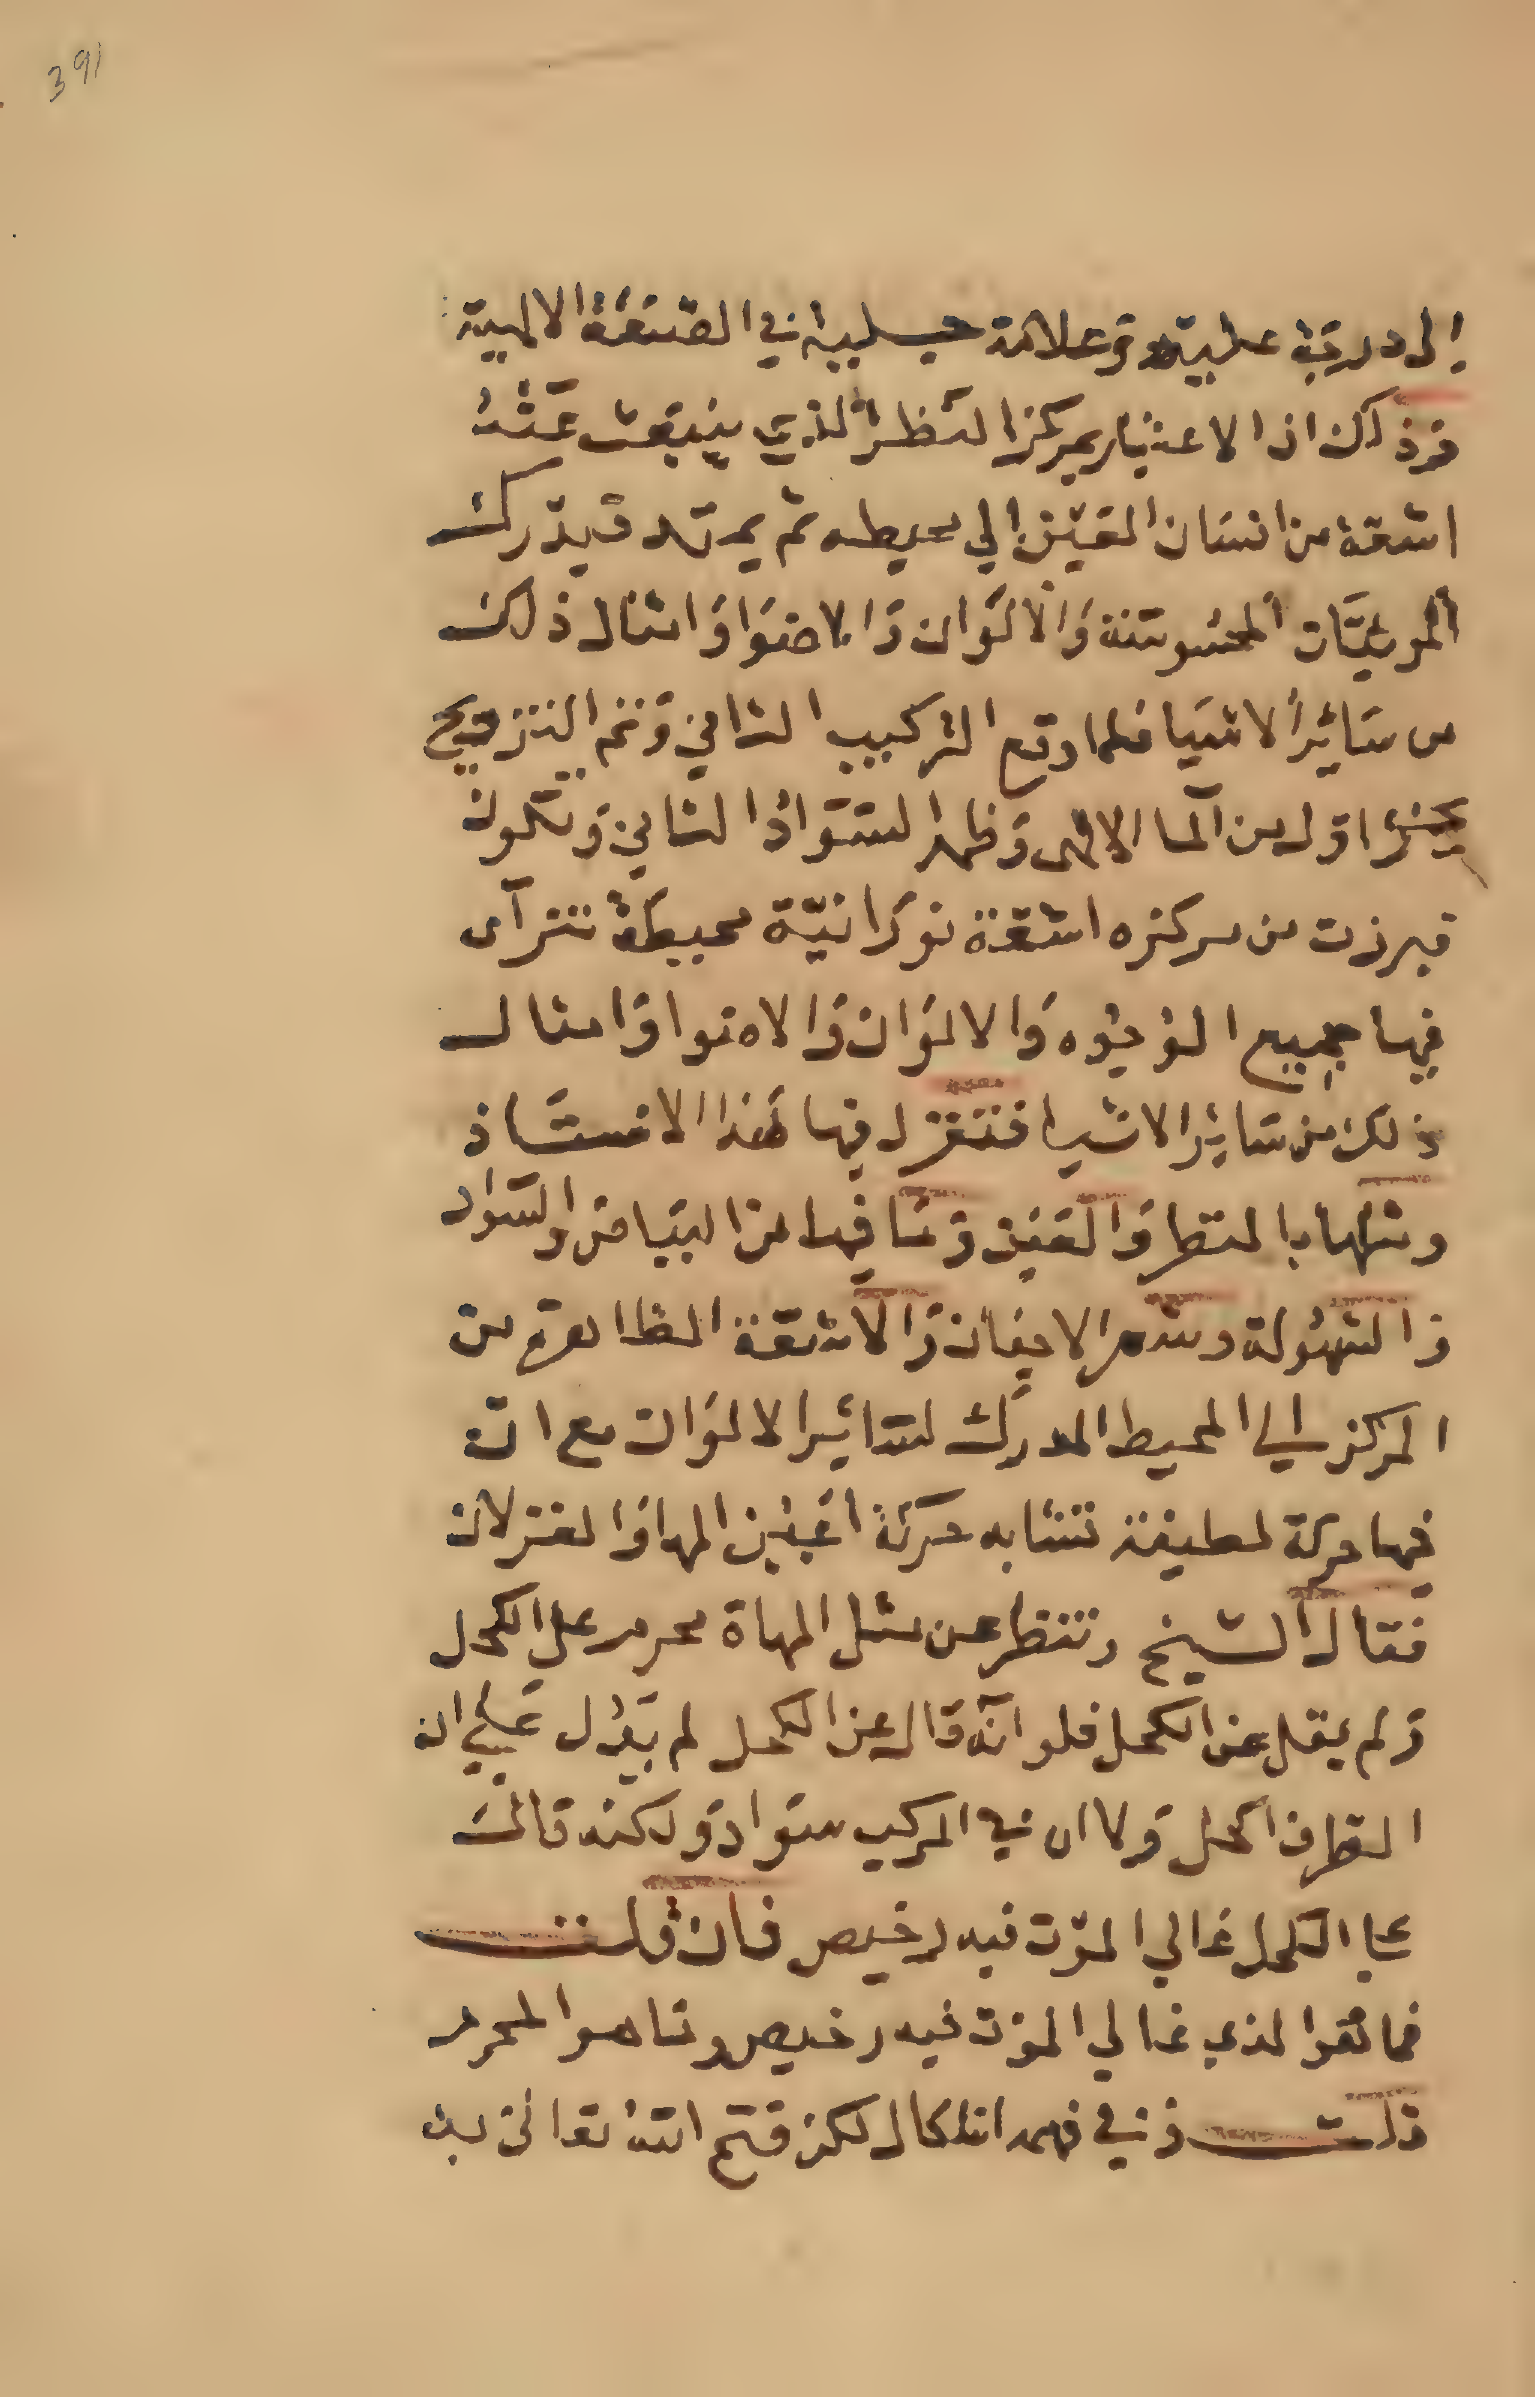 391
إلى درجة علية وعلامة جلية في الصنعة الالهية
وذلك ان الاعتبار بمركز النظر الذي ينبعث عنه
اشعة من انسان العين الي محيطه ثم يمرتد فيدرك
المرئيات المحسوسة والالوان والاضوا وامثال ذلك
من سائر الاشيا فلما وقع التركيب الثاني وتم التزويج
بجزء اول من الما الالهى وظهر السواد الثاني وتكون
فبرزت من مركزه اشعة نورانية محيطة تترآى
فيها جميع الوجوه والالوان والاضوا وامثال
ذلك من سائر الاشيا فتغزل فيها هذا الاستاذ
ومثلها بالنظر والعين وما فيها من البياض والسواد
والشهولة وشعر الاجفان والاشعة الظاهرة من
المركز الي المحيط المدرك لسائر الالوان مع ان
فيها حركة لطيفة تشابه حركة اعين المها والغزلان
فقال الشيخ وتنظر عن مثل المهاة محرم على الكحل
ولم يقل عن الكحل فلو انه قال عن الكحل لم يدل علي ان
الطرف اكحل ولا ان في المركب سواد ولكنه قال
على الكحل غالي الموت فيه رخيص فان قلت
فما هو الذي غالي الموت فيه رخيص وما هو المحرم
قلت وفي فهمه اشكال لكن فتح الله تعالى به